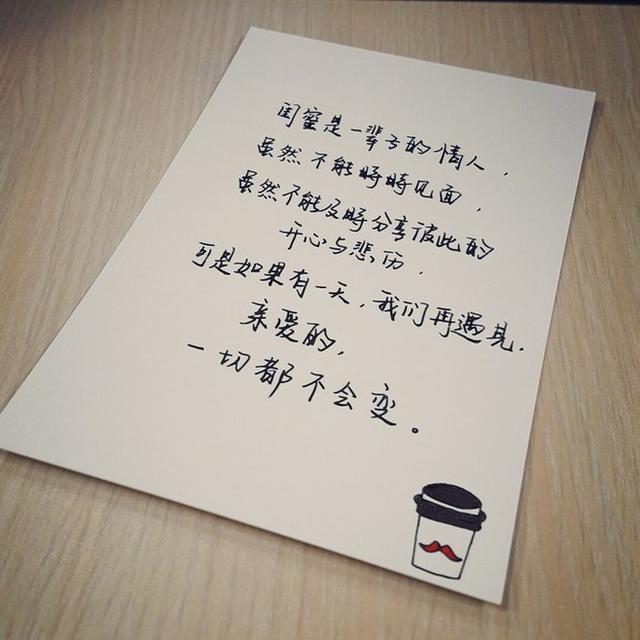 闺蜜是一辈子的情人，
虽然不能時時见面，
虽然不能及時分享彼此的
开心与悲伤，
可是如果有一天，我们再遇見，
亲爱的，
一切都不会变。